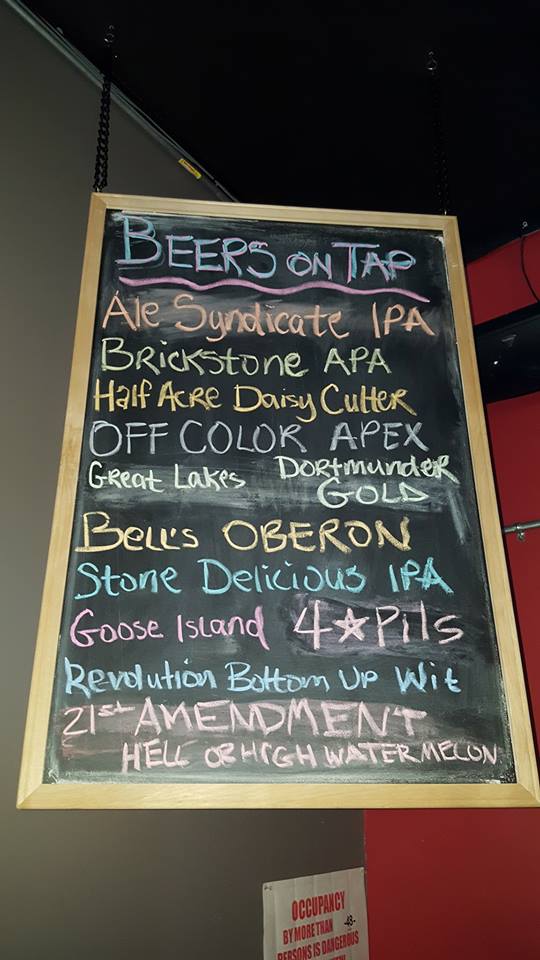 BEERS ON TAP
Ale Syndicate IPA
BRICKSTONE APA
Half ACRE Daisy Cutter
OFF COLOR APEX
Great Lakes Dortmunder
GOLD
Bell's OBERON
Stone Delicious IPA
Goose Island 4★Pils
Revolution Bottom Up Wit
21st AMENDMENT
HELL OR HIGH WATERMELON
OCCUPANCY
BY MORE THAN -48-
PERSONS IS DANGEROUS